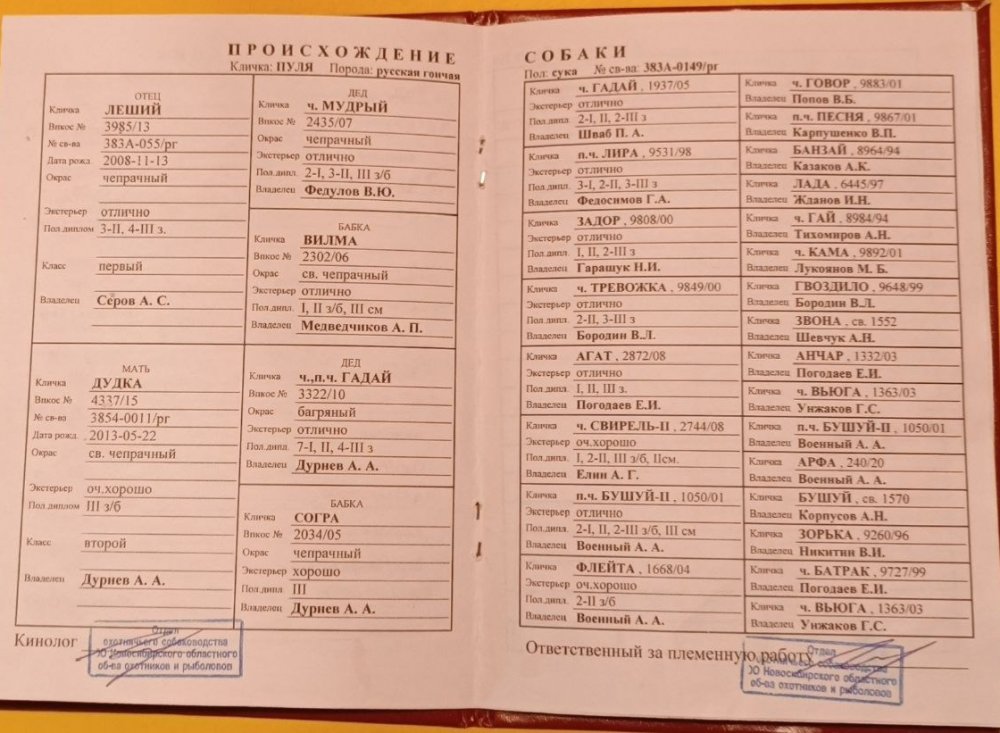 ПРОИСХОЖДЕНИЕ
Кличка: ПУЛЯ Порода: русская гончая
ОТЕЦ
Кличка ЛЕШИЙ
Впкос № 3985/13
№ св-ва 383А-055/рг
Дата рожд. 2008-11-13
Окрас чепрачный
Экстерьер отлично
Пол.диплом 3-II, 4-III з.
Класс первый
Владелец Серов А. С.
МАТЬ
Кличка ДУДКА
Впкос № 4337/15
№ св-ва 3854-0011/рг
Дата рожд. 2013-05-22
Окрас св. чепрачный
Экстерьер оч.хорошо
Пол.диплом III з/б
Класс второй
Владелец Дурнев А. А.
ДЕД
Кличка ч. МУДРЫЙ
Впкос № 2435/07
Окрас чепрачный
Экстерьер отлично
Пол.дипл. 2-I, 3-II, III з/б
Владелец Федулов В.Ю.
БАБКА
Кличка ВИЛМА
Впкос № 2302/06
Окрас св. чепрачный
Экстерьер отлично
Пол.дипл. I, II з/б, III см
Владелец Медведчиков А. П.
ДЕД
Кличка ч.,п.ч. ГАДАЙ
Впкос № 3322/10
Окрас багряный
Экстерьер отлично
Пол.дипл. 7-I, II, 4-III з
Владелец Дурнев А. А.
БАБКА
Кличка СОГРА
Впкос № 2034/05
Окрас чепрачный
Экстерьер хорошо
Пол.дипл III
Владелец Дурнев А. А.
Кинолог
Отдел
охотничьего собаководства
ЭО Новосибирского областного
об-ва охотников и рыболовов
СОБАКИ
Пол: сука № св-ва: 383А-0149/рг
Кличка ч. ГАДАЙ , 1937/05
Экстерьер отлично
Пол.дипл. 2-I, II, 2-III з
Владелец Шваб П. А.
Кличка п.ч. ЛИРА , 9531/98
Экстерьер отлично
Пол.дипл. 3-I, 2-II, 3-III з
Владелец Федосимов Г.А.
Кличка ЗАДОР , 9808/00
Экстерьер отлично
Пол.дипл. I, II, 2-III з
Владелец Гаращук Н.И.
Кличка ч. ТРЕВОЖКА , 9849/00
Экстерьер отлично
Пол.дипл. 2-II, 3-III з
Владелец Бородин В.Л.
Кличка АГАТ , 2872/08
Экстерьер отлично
Пол.дипл. I, II, III з.
Владелец Погодаев Е.И.
Кличка ч. СВИРЕЛЬ-II , 2744/08
Экстерьер оч.хорошо
Пол.дипл. I, 2-II, III з/б, IIсм.
Владелец Елин А. Г.
Кличка п.ч. БУШУЙ-II , 1050/01
Экстерьер отлично
Пол.дипл. 2-I, II, 2-III з/б, III см
Владелец Военный А. А.
Кличка ФЛЕЙТА , 1668/04
Экстерьер оч.хорошо
Пол.дипл. 2-II з/б
Владелец Военный А. А.
Кличка ч. ГОВОР , 9883/01
Владелец Попов В.Б.
Кличка п.ч. ПЕСНЯ , 9867/01
Владелец Карпушенко В.П.
Кличка БАНЗАЙ , 8964/94
Владелец Казаков А.К.
Кличка ЛАДА , 6445/97
Владелец Жданов И.Н.
Кличка ч. ГАЙ , 8984/94
Владелец Тихомиров А.Н.
Кличка ч. КАМА , 9892/01
Владелец Лукоянов М. Б.
Кличка ГВОЗДИЛО , 9648/99
Владелец Бородин В.Л.
Кличка ЗВОНА , св. 1552
Владелец Шевчук А.Н.
Кличка АНЧАР , 1332/03
Владелец Погодаев Е.И.
Кличка ч. ВЬЮГА , 1363/03
Владелец Унжаков Г.С.
Кличка п.ч. БУШУЙ-II , 1050/01
Владелец Военный А. А.
Кличка АРФА , 240/20
Владелец Военный А. А.
Кличка БУШУЙ , св. 1570
Владелец Корпусов А.Н.
Кличка ЗОРЬКА , 9260/96
Владелец Никитин В.И.
Кличка ч. БАТРАК , 9727/99
Владелец Погодаев Е.И.
Кличка ч. ВЬЮГА , 1363/03
Владелец Унжаков Г.С.
Ответственный за племенную работу
Отдел
охотничьего собаководства
ЭО Новосибирского областного
об-ва охотников и рыболовов